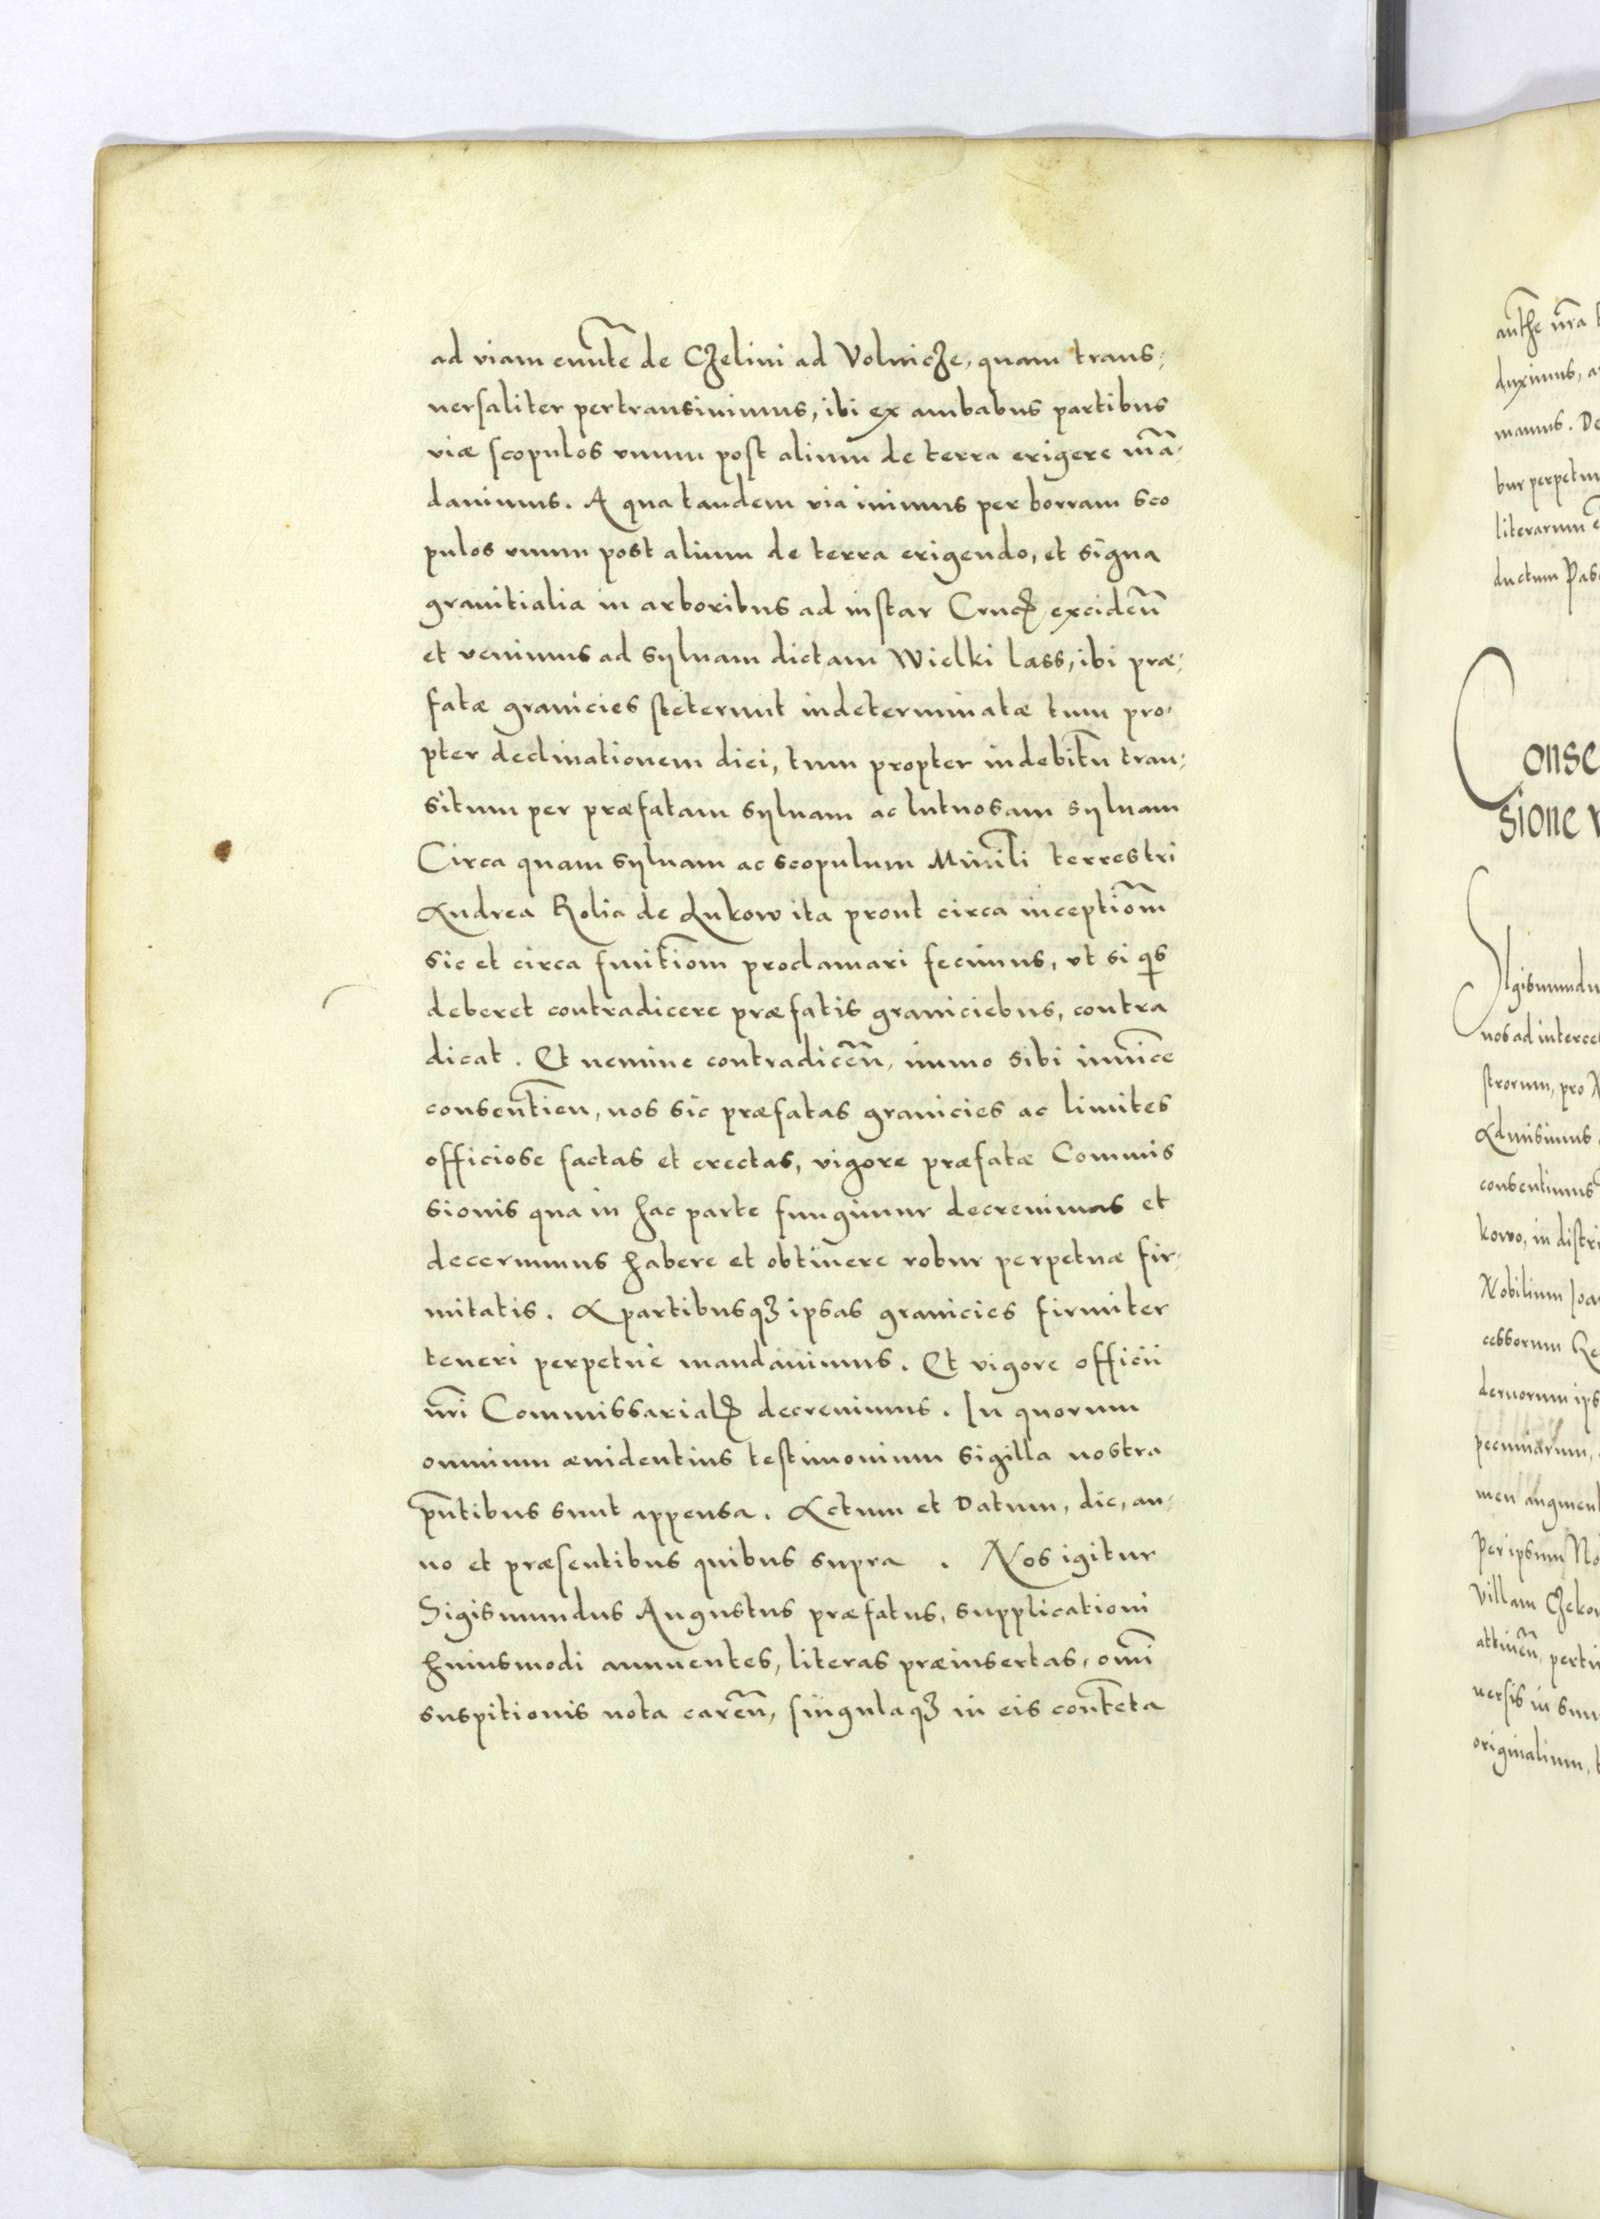 ad viam eun̄te de Czelini ad Volnicze, quam trans,
uersaliter pertransiuimus, ibi ex ambabus partibus
viæ scopulos vnum post alium de terra erigere mā,
dauimus. A qua tandem via iuimus per borram sco
pulos vnum post alium de terra erigendo, et signa
granitialia in arboribus ad instar Cruc̨ exciden̄
et venimus ad syluam dictam Wielki lass, ibi præ,
fatæ granicies steterunt indeterminatæ tum pro,
pter declinationem diei, tum propter indebitū tran,
situm per præfatam syluam ac lutuosam syluam
Circa quam syluam ac scopulum Minrl̄i terrestri
Andrea Rolia de Lukow ita prout circa inceptiom̄
sic et circa finitiom̄ proclamari fecimus, vt si qis
deberet contradicere præfatis graniciebus, contra
dicat. Et nemine contradicen̄, immo sibi inuic̄e
consentīen, nos sic præfatas granicies ac limites
officiose factas et erectas, vigore præfatæ Commis
sionis qua in hac parte fungimur decreuimus et
decernimus habere et obtinere robur perpetuæ fir,
mitatis. A partibusqʒ ipsas granicies firmiter
teneri perpetuè mandauimus. Et vigore officii
nr̄i Commissarial̨ decreuimus. In quorum
omnium æuidentius testimonium sigilla nostra
pn̄tibus sunt appensa. Actum et Datum, die, an,
no et præsentibus quibus supra. Nos igitur
Sigismundus Augustus præfatus, supplicationi
huiusmodi annuentes, literas præinsertas, om̄i
suspitionis nota caren̄, singulaqʒ in eis conten̄ta
an̄the nr̄a
duximus,
manus. De
bur perpetu
literarum
ductum Pas
Conse
sione
Sigismundu
nos ad interce
strorum, pro
Admisimus
consentimus
kowo, in distri
Nobilium Ioa
cessorum Re
deruorum ips
pecuniarum,
men augment
Per ipsum No
Villam Czekow
attinen̄, perti
uersis in sum
originalium,